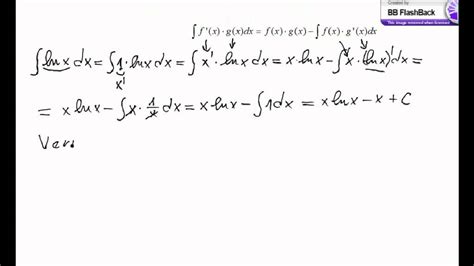 Created by
BB FlashBack
This image removed when licensed
∫ f'(x) · g(x)dx = f(x) · g(x) - ∫ f(x) · g'(x)dx
∫ ln x dx = ∫ 1 · ln x dx = ∫ x' · ln x dx = x ln x - ∫ x · (ln x)' dx =
x'
= x ln x - ∫ x · 1/x dx = x ln x - ∫ 1 dx = x ln x - x + C
Var